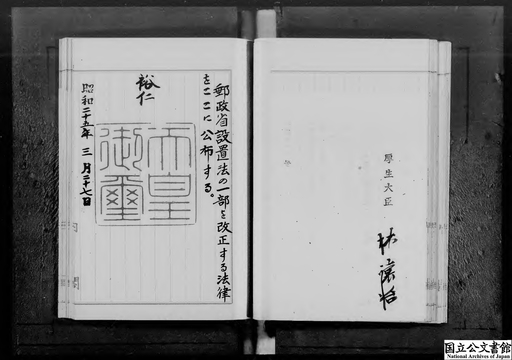 厚生大臣
林讓治
郵政省設置法の一部を改正する法律
をここに公布する。
裕仁
天皇
御璽
昭和二十五年三月二十七日
国立公文書館
National Archives of Japan